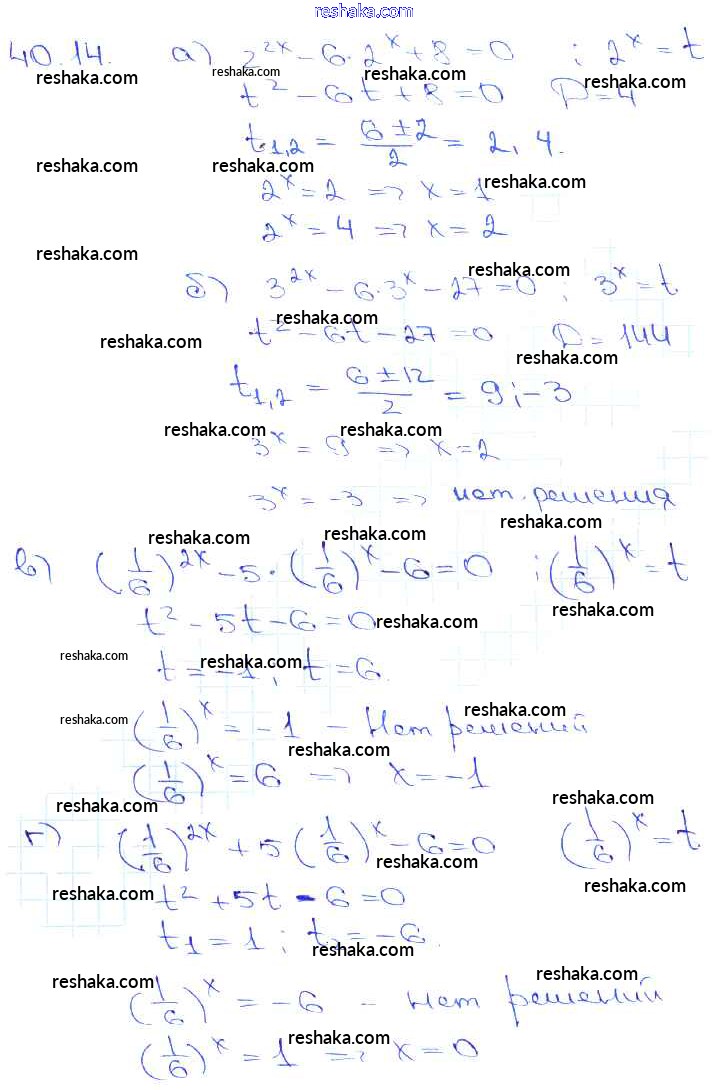 reshaka.com
40.14. а) 2^{2x} - 6·2^x + 8 = 0 ; 2^x = t
reshaka.com reshaka.com reshaka.com
t^2 - 6t + 8 = 0 D = 4
reshaka.com reshaka.com
t_{1,2} = \frac{6 ± 2}{2} = 2, 4.
reshaka.com reshaka.com
2^x = 2 => x = 1
reshaka.com
2^x = 4 => x = 2
reshaka.com
reshaka.com
б) 3^{2x} - 6·3^x - 27 = 0 ; 3^x = t
reshaka.com
t^2 - 6t - 27 = 0 D = 144
reshaka.com
reshaka.com
t_{1,2} = \frac{6 ± 12}{2} = 9; -3
reshaka.com reshaka.com
3^x = 9 => x = 2
3^x = -3 => нет решения
reshaka.com
reshaka.com reshaka.com
в) (\frac{1}{6})^{2x} - 5·(\frac{1}{6})^x - 6 = 0 ; (\frac{1}{6})^x = t
reshaka.com
t^2 - 5t - 6 = 0
reshaka.com
reshaka.com reshaka.com
t = -1; t = 6
reshaka.com reshaka.com
(\frac{1}{6})^x = -1 - Нет решений
reshaka.com
(\frac{1}{6})^x = 6 => x = -1
reshaka.com reshaka.com
г) (\frac{1}{6})^{2x} + 5(\frac{1}{6})^x - 6 = 0 (\frac{1}{6})^x = t
reshaka.com
reshaka.com reshaka.com
t^2 + 5t - 6 = 0
t_1 = 1; t_2 = -6
reshaka.com
reshaka.com reshaka.com
(\frac{1}{6})^x = -6 - нет решений
reshaka.com
(\frac{1}{6})^x = 1 => x = 0
reshaka.com